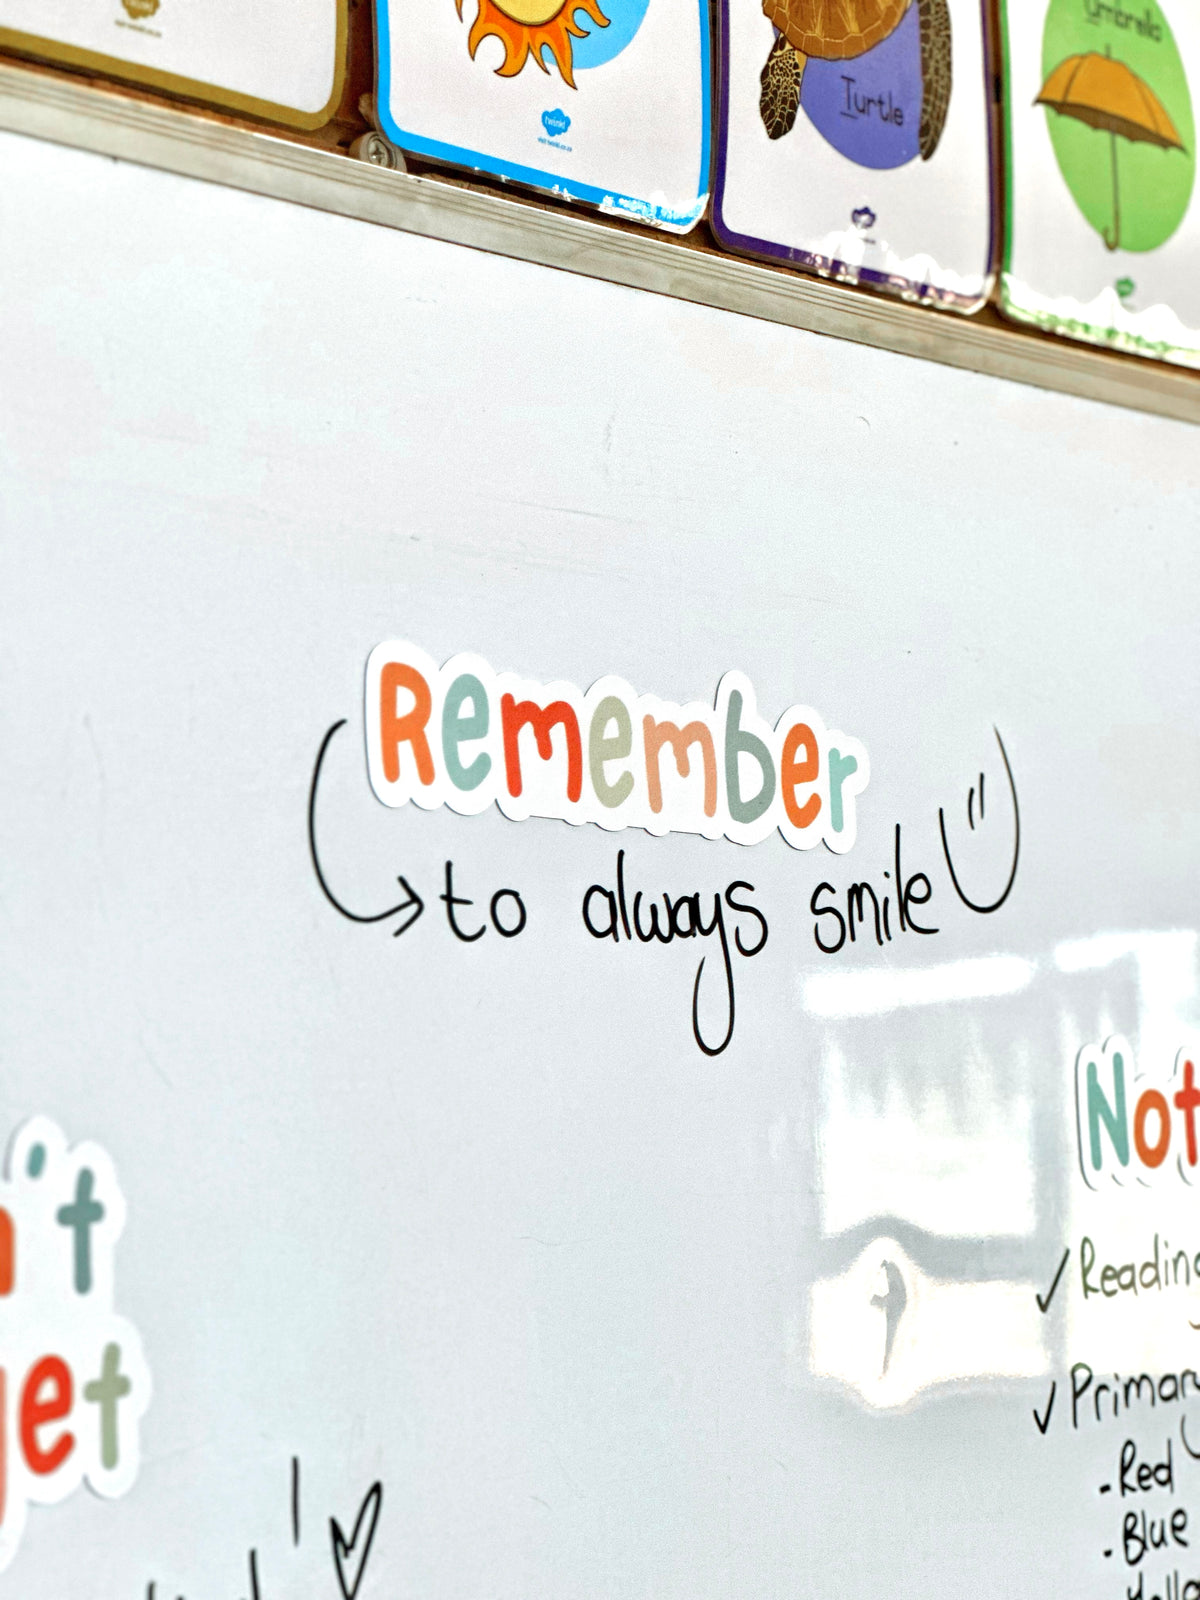 twinkl
Turtle
Umbrella
Remember
to always smile
Not
Reading
Primary
- Red
- Blue
't
get